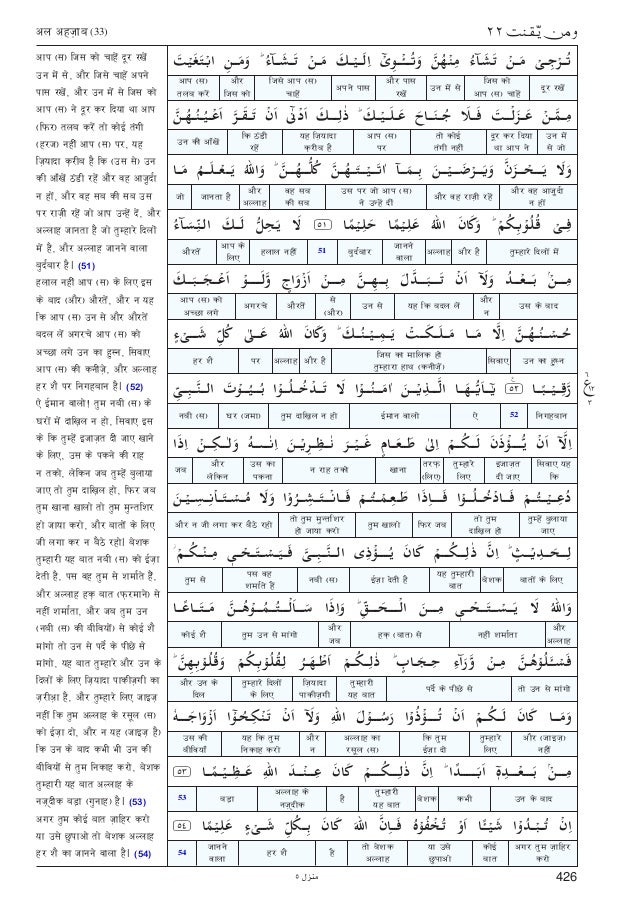 अल अहज़ाब (33)
ومن يّقنت ٢٢
आप (स) जिस को चाहें दूर रखें
उन में से, और जिसे चाहें अपने
पास रखें, और उन में से जिस को
आप (स) ने दूर कर दिया था आप
(फिर) तलब करें तो कोई तंगी
(हरज) नहीं आप (स) पर, यह
ज़ियादा क़रीब है कि (उस से) उन
की आँखें ठंडी रहें और वह आज़ुर्दा
न हों, और वह सब की सब उस
पर राज़ी रहें जो आप उन्हें दें, और
अल्लाह जानता है जो तुम्हारे दिलों
में है, और अल्लाह जानने वाला
बुर्दबार है। (51)
हलाल नहीं आप (स) के लिए इस
के बाद (और) औरतें, और न यह
कि आप (स) उन से और औरतें
बदल लें अगरचे आप (स) को
अच्छा लगे उन का हुस्न, सिवाए
आप (स) की कनीज़ें, और अल्लाह
हर शै पर निगहबान है। (52)
ऐ ईमान वालो! तुम नबी (स) के
घरों में दाख़िल न हो, सिवाए इस
के कि तुम्हें इजाज़त दी जाए खाने
के लिए, उस के पकने की राह
न तको, लेकिन जब तुम्हें बुलाया
जाए तो तुम दाख़िल हो, फिर जब
तुम खाना खालो तो तुम मुन्तशिर
हो जाया करो, और बातों के लिए
जी लगा कर न बैठे रहो। बेशक
तुम्हारी यह बात नबी (स) को ईज़ा
देती है, पस वह तुम से शर्माते हैं,
और अल्लाह हक़ बात (फ़रमाने) से
नहीं शर्माता, और जब तुम उन
(नबी (स) की बीवियों) से कोई शै
मांगो तो उन से पर्दे के पीछे से
मांगो, यह बात तुम्हारे और उन के
दिलों के लिए ज़ियादा पाकीज़गी का
ज़रीआ है, और तुम्हारे लिए जाइज़
नहीं कि तुम अल्लाह के रसूल (स)
को ईज़ा दो, और न यह (जाइज़ है)
कि उन के बाद कभी भी उन की
बीवियों से तुम निकाह करो, बेशक
तुम्हारी यह बात अल्लाह के
नज़्दीक बड़ा (गुनाह) है। (53)
अगर तुम कोई बात ज़ाहिर करो
या उसे छुपाओ तो बेशक अल्लाह
हर शै का जानने वाला है। (54)
تُرْجِيْ مَنْ تَشَآءُ مِنْهُنَّ وَتُـْٔوِيْٓ اِلَيْكَ مَنْ تَشَآءُ ؕ وَمَنِ ابْتَغَيْتَ
दूर रखें जिस को आप (स) चाहें उन में से और पास रखें अपने पास जिसे आप (स) चाहें और जिस को आप (स) तलब करें
مِمَّنْ عَزَلْتَ فَلَا جُنَاحَ عَلَيْكَ ؕ ذٰلِكَ اَدْنٰٓى اَنْ تَقَرَّ اَعْيُنُهُنَّ
उन में से जो दूर कर दिया था आप ने तो कोई तंगी नहीं आप (स) पर यह ज़ियादा क़रीब है कि ठंडी रहें उन की आँखें
وَلَا يَحْزَنَّ وَيَرْضَيْنَ بِمَآ اٰتَيْتَهُنَّ كُلُّهُنَّ ؕ وَاللّٰهُ يَعْلَمُ مَا
और वह आज़ुर्दा न हों और वह राज़ी रहें उस पर जो आप (स) ने उन्हें दीं वह सब की सब और अल्लाह जानता है जो
فِيْ قُلُوْبِكُمْ ؕ وَكَانَ اللّٰهُ عَلِيْمًا حَلِيْمًا ٥١ لَا يَحِلُّ لَكَ النِّسَآءُ
तुम्हारे दिलों में और है अल्लाह जानने वाला बुर्दबार 51 हलाल नहीं आप के लिए औरतें
مِنْۢ بَعْدُ وَلَآ اَنْ تَبَدَّلَ بِهِنَّ مِنْ اَزْوَاجٍ وَّلَوْ اَعْجَبَكَ
उस के बाद और न यह कि बदल लें उन से से (और) औरतें अगरचे आप (स) को अच्छा लगे
حُسْنُهُنَّ اِلَّا مَا مَلَكَتْ يَمِيْنُكَ ؕ وَكَانَ اللّٰهُ عَلٰى كُلِّ شَيْءٍ
उन का हुस्न सिवाए जिस का मालिक हो तुम्हारा हाथ (कनीज़ें) और है अल्लाह पर हर शै
رَّقِيْبًا ٥٢ يٰٓاَيُّهَا الَّذِيْنَ اٰمَنُوْا لَا تَدْخُلُوْا بُيُوْتَ النَّبِيِّ
निगहबान 52 ऐ ईमान वालो तुम दाख़िल न हो घर (जमा) नबी (स)
اِلَّآ اَنْ يُّؤْذَنَ لَكُمْ اِلٰى طَعَامٍ غَيْرَ نٰظِرِيْنَ اِنٰىهُ وَلٰكِنْ اِذَا
सिवाए यह कि इजाज़त दी जाए तुम्हारे लिए तरफ़ (लिए) खाना न राह तको उस का पकना और लेकिन जब
دُعِيْتُمْ فَادْخُلُوْا فَاِذَا طَعِمْتُمْ فَانْتَشِرُوْا وَلَا مُسْتَاْنِسِيْنَ
तुम्हें बुलाया जाए तो तुम दाख़िल हो फिर जब तुम खालो तो तुम मुन्तशिर हो जाया करो और न जी लगा कर बैठे रहो
لِحَدِيْثٍ ؕ اِنَّ ذٰلِكُمْ كَانَ يُؤْذِي النَّبِيَّ فَيَسْتَحْيٖ مِنْكُمْ ؗ
बातों के लिए बेशक यह तुम्हारी बात ईज़ा देती है नबी (स) पस वह शर्माते हैं तुम से
وَاللّٰهُ لَا يَسْتَحْيٖ مِنَ الْحَقِّ ؕ وَاِذَا سَاَلْتُمُوْهُنَّ مَتَاعًا
और अल्लाह नहीं शर्माता हक़ (बात) से और जब तुम उन से मांगो कोई शै
فَسْـَٔلُوْهُنَّ مِنْ وَّرَآءِ حِجَابٍ ؕ ذٰلِكُمْ اَطْهَرُ لِقُلُوْبِكُمْ وَقُلُوْبِهِنَّ ؕ
तो उन से मांगो पर्दे के पीछे से तुम्हारी यह बात ज़ियादा पाकीज़गी तुम्हारे दिलों के लिए और उन के दिल
وَمَا كَانَ لَكُمْ اَنْ تُؤْذُوْا رَسُوْلَ اللّٰهِ وَلَآ اَنْ تَنْكِحُوْٓا اَزْوَاجَهٗ
और (जाइज़) नहीं तुम्हारे लिए कि तुम ईज़ा दो अल्लाह का रसूल (स) और न यह कि तुम निकाह करो उस की बीवियाँ
مِنْۢ بَعْدِهٖٓ اَبَدًا ؕ اِنَّ ذٰلِكُمْ كَانَ عِنْدَ اللّٰهِ عَظِيْمًا ٥٣
उन के बाद कभी बेशक तुम्हारी यह बात है अल्लाह के नज़्दीक बड़ा 53
اِنْ تُبْدُوْا شَيْـًٔا اَوْ تُخْفُوْهُ فَاِنَّ اللّٰهَ كَانَ بِكُلِّ شَيْءٍ عَلِيْمًا ٥٤
अगर तुम ज़ाहिर करो कोई बात या उसे छुपाओ तो बेशक अल्लाह है हर शै जानने वाला 54
٦
ع١٢
٣
منزل ٥
426